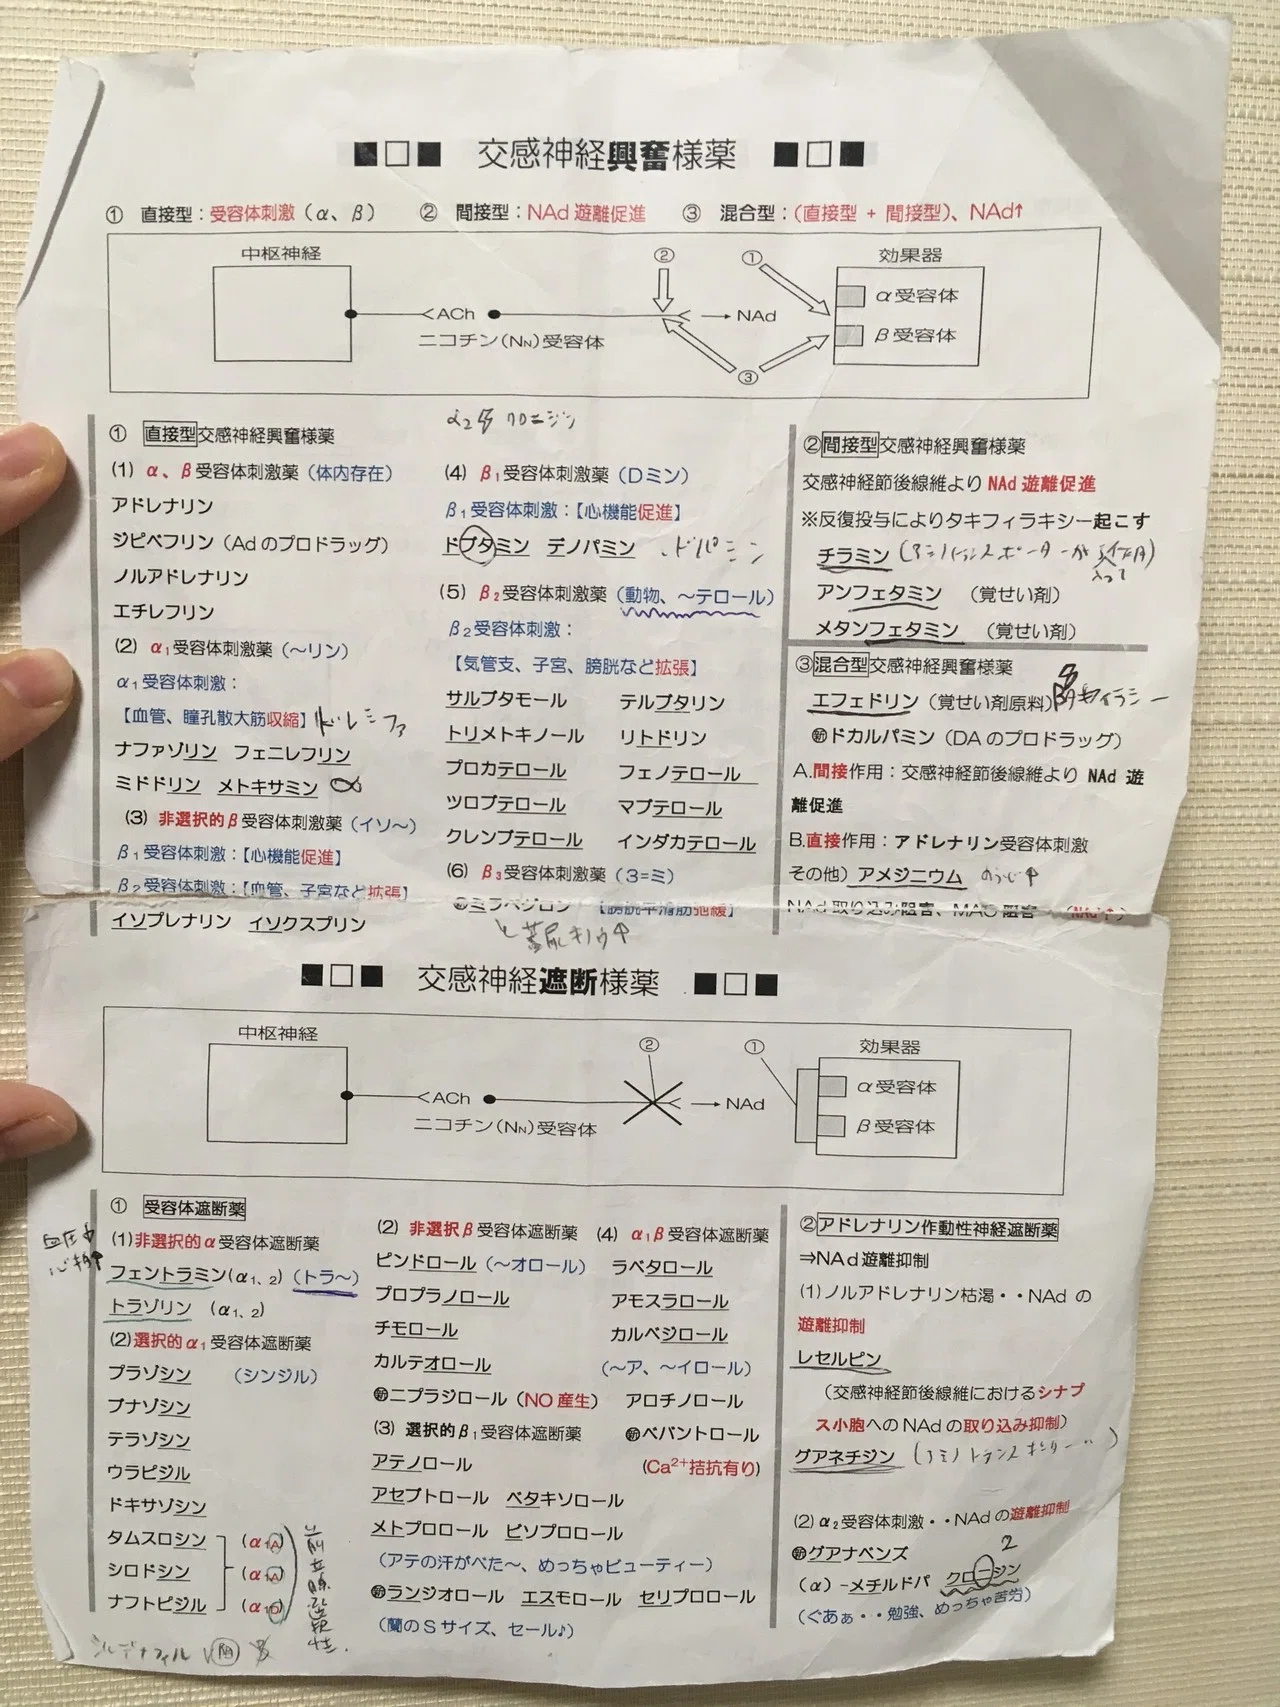 ■□■ 交感神経興奮様薬 ■□■
① 直接型：受容体刺激（α、β） ② 間接型：NAd 遊離促進 ③ 混合型：（直接型 + 間接型）、NAd↑
中枢神経
② ① 効果器
α受容体
ACh NAd
β受容体
ニコチン（NN）受容体
③
α2 クロニジン
① 直接型交感神経興奮様薬
(1) α、β受容体刺激薬（体内存在）
アドレナリン
ジピベフリン（Adのプロドラッグ）
ノルアドレナリン
エチレフリン
(2) α1受容体刺激薬（～リン）
α1受容体刺激：
【血管、瞳孔散大筋収縮】
ナファゾリン フェニレフリン
ミドドリン メトキサミン
(3) 非選択的β受容体刺激薬（イソ～）
β1受容体刺激：【心機能促進】
β2受容体刺激：【血管、子宮など拡張】
イソプレナリン イソクスプリン
(4) β1受容体刺激薬（Dミン）
β1受容体刺激：【心機能促進】
ドブタミン デノパミン 、ドパミン
(5) β2受容体刺激薬（動物、～テロール）
β2受容体刺激：
【気管支、子宮、膀胱など拡張】
サルブタモール テルブタリン
トリメトキノール リトドリン
プロカテロール フェノテロール
ツロブテロール マブテロール
クレンブテロール インダカテロール
(6) β3受容体刺激薬（3=ミ）
㊟ミラベグロン 【膀胱平滑筋弛緩】
蓄尿キノウ↑
②間接型交感神経興奮様薬
交感神経節後線維より NAd 遊離促進
※反復投与によりタキフィラキシー起こす
チラミン（アミントランスポーターが
アンフェタミン （覚せい剤）
メタンフェタミン （覚せい剤）
③混合型交感神経興奮様薬
エフェドリン（覚せい剤原料）
㊟ドカルパミン（DAのプロドラッグ）
A.間接作用：交感神経節後線維より NAd 遊
離促進
B.直接作用：アドレナリン受容体刺激
その他）アメジニウム
NAd 取り込み阻害、MAO 阻害 （NAd↑）
■□■ 交感神経遮断様薬 ■□■
中枢神経
② ① 効果器
α受容体
ACh NAd
β受容体
ニコチン（NN）受容体
① 受容体遮断薬
血圧↓
心拍↑
(1)非選択的α受容体遮断薬
フェントラミン(α1、2)（トラ～）
トラゾリン （α1、2）
(2)選択的α1受容体遮断薬
プラゾシン （シンジル）
ブナゾシン
テラゾシン
ウラピジル
ドキサゾシン
タムスロシン （α1A）
シロドシン （α1A）
ナフトピジル （α1D）
前立腺選択性.
シルデナフィル
(2) 非選択β受容体遮断薬
ピンドロール（～オロール）
プロプラノロール
チモロール
カルテオロール
㊟ニプラジロール（NO 産生）
(3) 選択的β1受容体遮断薬
アテノロール
アセブトロール ベタキソロール
メトプロロール ビソプロロール
（アテの汗がべた～、めっちゃビューティー）
㊟ランジオロール エスモロール セリプロロール
（蘭のSサイズ、セール♪）
(4) α1β受容体遮断薬
ラベタロール
アモスラロール
カルベジロール
（～ア、～イロール）
アロチノロール
㊟ベバントロール
（Ca2+拮抗有り）
②アドレナリン作動性神経遮断薬
⇒NAd遊離抑制
(1)ノルアドレナリン枯渇・・NAd の
遊離抑制
レセルピン
（交感神経節後線維におけるシナプ
ス小胞へのNAdの取り込み抑制）
グアネチジン（アミントランスポーター‥）
(2) α2受容体刺激・・NAdの遊離抑制
2
㊟グアナベンズ
（α）-メチルドパ クロニジン
（ぐあぁ・・勉強、めっちゃ苦労）